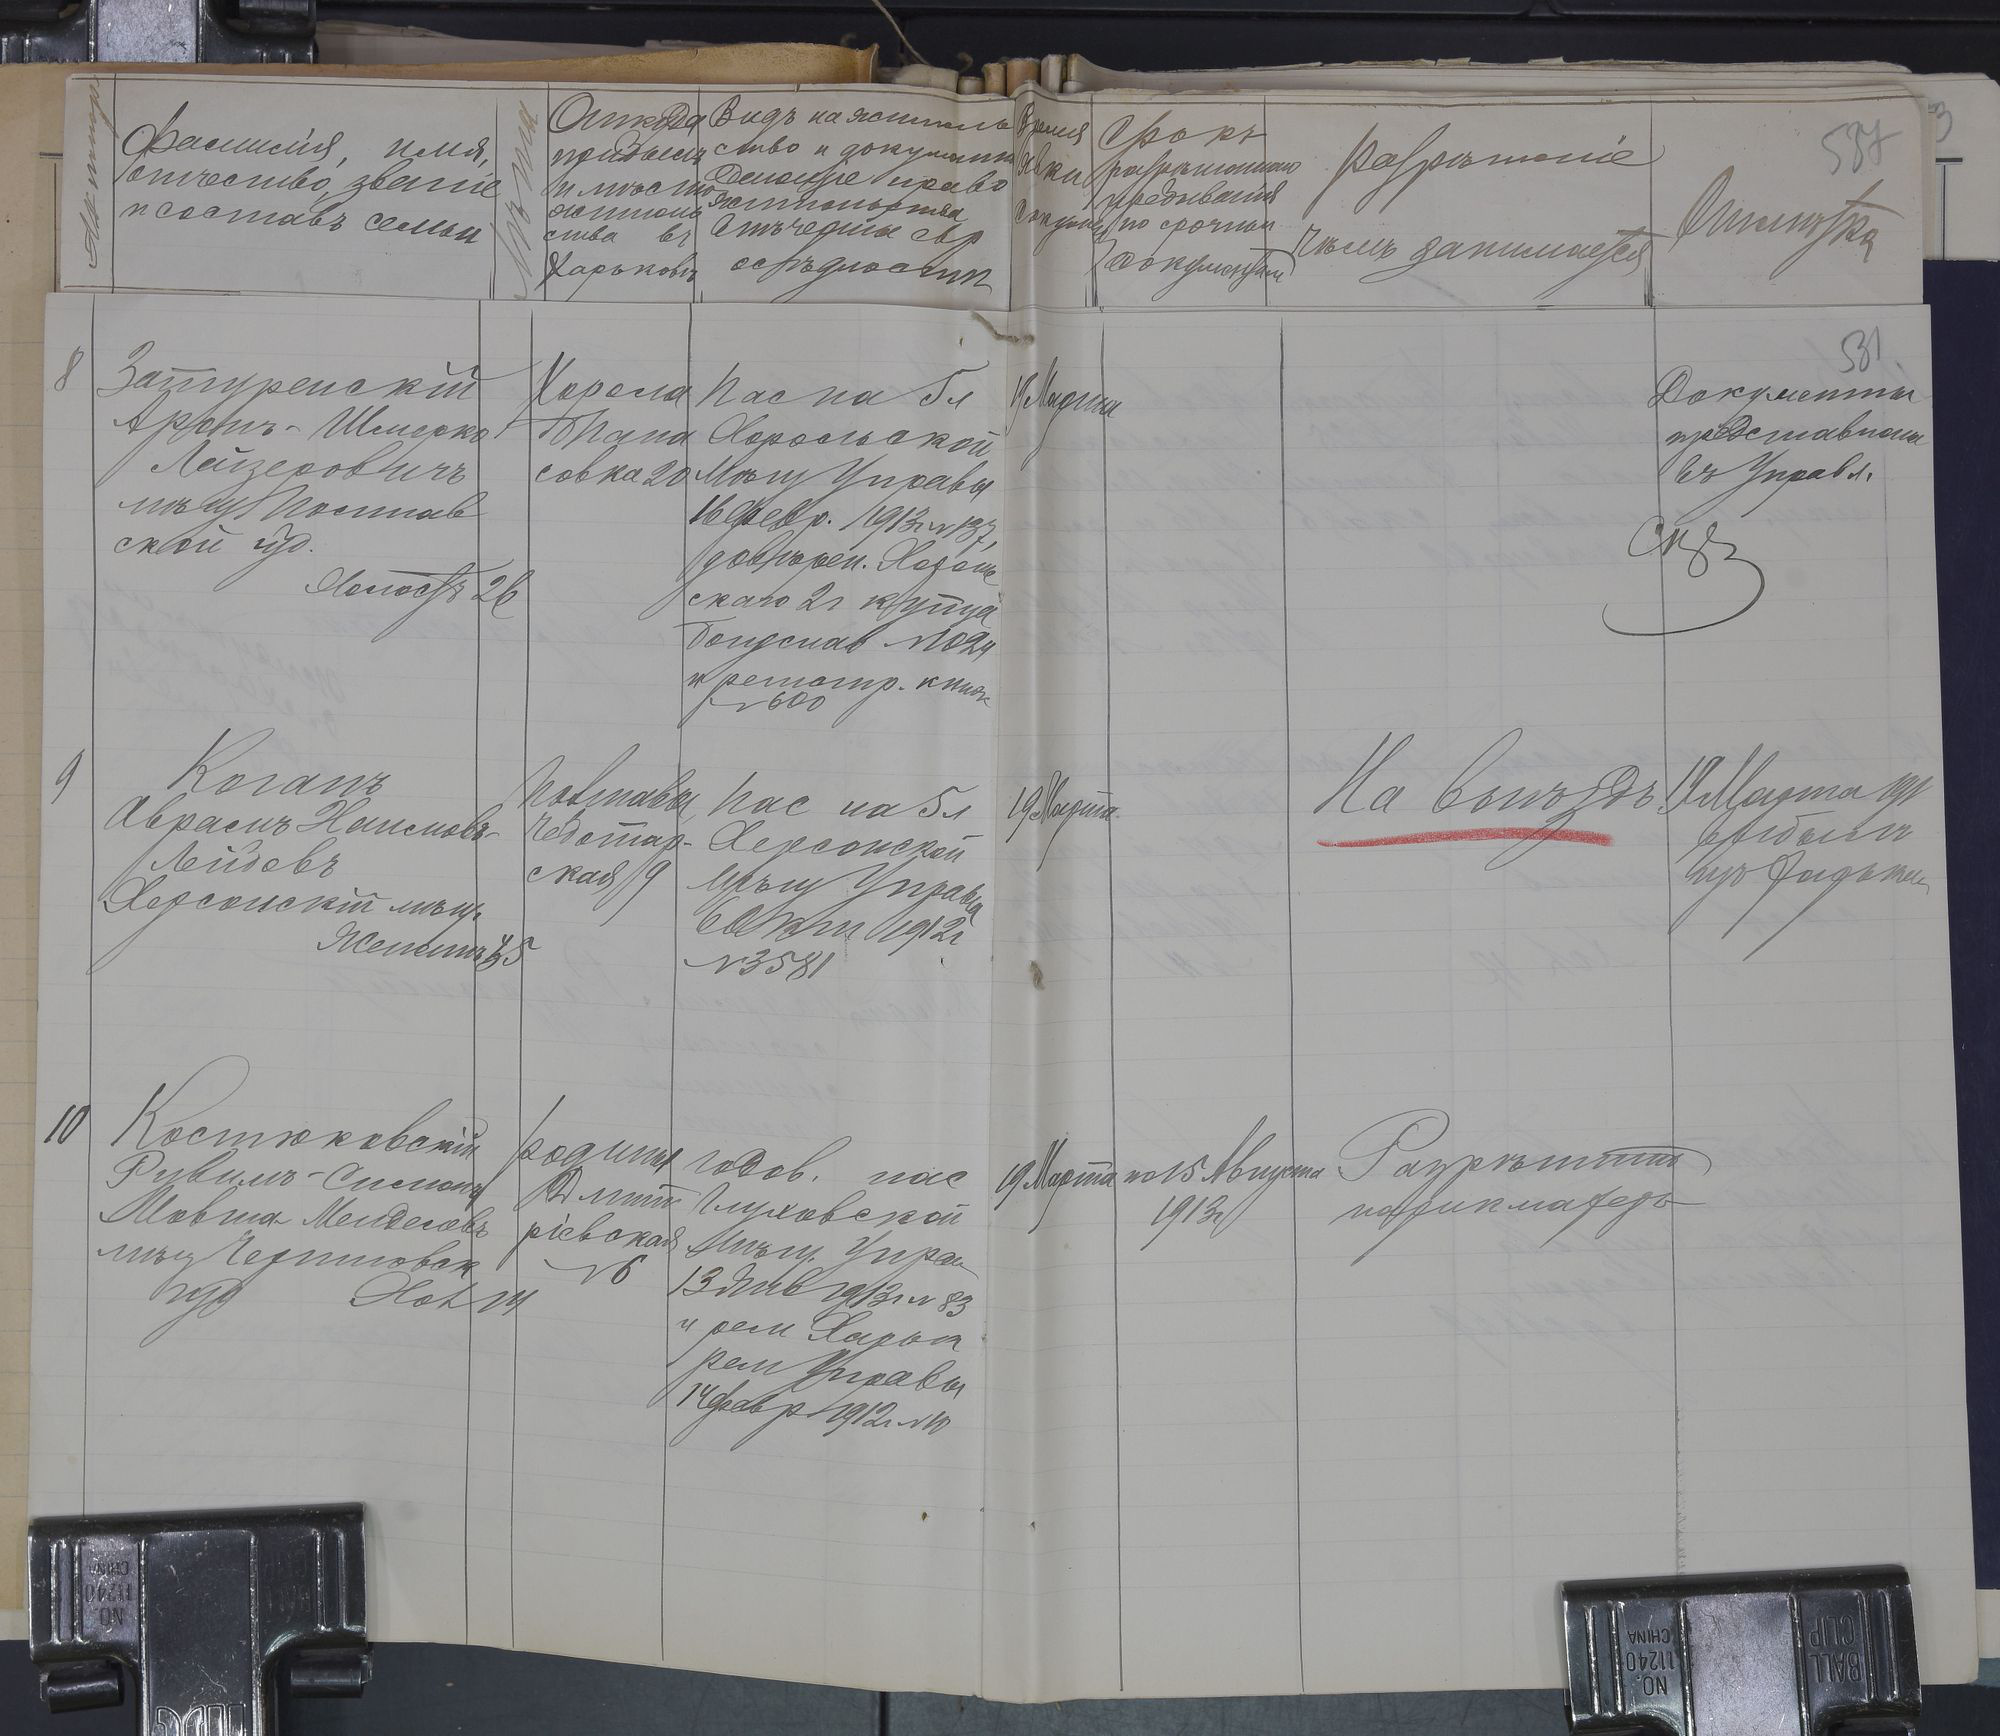 Фамилія, имя,
отчество, званіе
и составъ семьи
Откуда
прибылъ
и мѣсто
житель
ства въ
Харьковѣ
Видъ на житель
ство и документы
дающіе право
жительства
въ
осѣдлости
Время
явки
Срокъ
разрѣшеннаго
пребыванія
по срочным
документам
Разрѣшеніе
чѣмъ занимается
Отмѣтка
537
531
8
Затуренскій
Аронъ-Шмерко
Лейзеровичъ
мѣщ Полтав
ской губ.
Холостъ 26
Хорола
совка 20
Пас на 5 л
Хорольской
Мѣщ Управы
16 Февр. 1913 г № 137,
довѣрен. Хороль
скаго 2 г купца
Богуслав №
и регистр. книж
№ 600
19 Марта
Документы
представлены
въ Управл.
9
Коганъ
Аврамъ Наимовъ-
Лейбовъ
Херсонскій мѣщ.
Женатъ
Полтавы,
Чеботар-
ская 9
Пас на 5 л
Херсонской
Мѣщ Управы
6 Окт 1912 г
№ 3581
19 Марта
На выѣздъ
19 Марта
выбылъ
10
Костюковскій
Рувимъ-Симонъ
Шовша-Менделевъ
мѣщ Черниговск
губ Хол
родины
Дмит
ріевская
№ 6
годов. пас
Глуховской
Мѣщ. Управ
13 Янв 1913 г № 83
и рем Харьк
рем Управы
14 февр 1912 г № 10
19 Марта
по 15 Августа
1913 г
Разрѣшить
парикмахеръ
NO.
11240
CHINA
NO.
11240
CHINA
BALL
CLIP